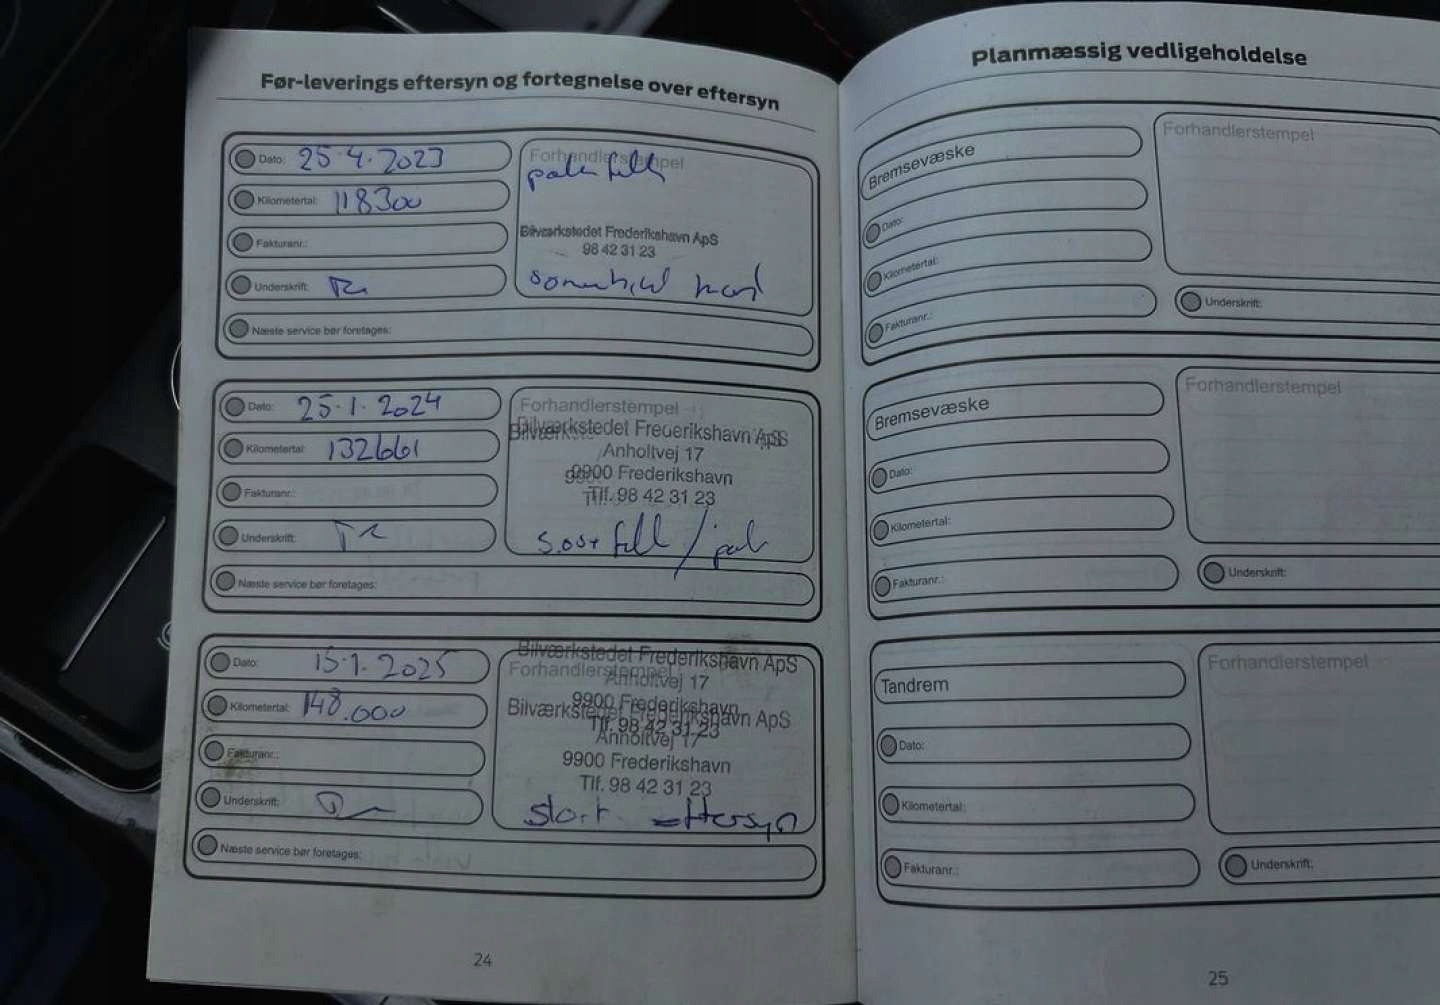 Før-leverings eftersyn og fortegnelse over eftersyn
Dato: 25.4.2023
Kilometertal: 118300
Fakturanr.:
Underskrift:
Næste service bør foretages:
Forhandlerstempel
Bilværkstedet Frederikshavn ApS
98 42 31 23
Dato: 25.1.2024
Kilometertal: 132661
Fakturanr.:
Underskrift:
Næste service bør foretages:
Forhandlerstempel
Bilværkstedet Frederikshavn ApS
Anholtvej 17
9900 Frederikshavn
Tlf. 98 42 31 23
Dato: 15.1.2025
Kilometertal: 148.000
Fakturanr.:
Underskrift:
Næste service bør foretages:
Bilværkstedet Frederikshavn ApS
Forhandlerstempel
Anholtvej 17
9900 Frederikshavn
Tlf. 98 42 31 23
Bilværkstedet Frederikshavn ApS
Anholtvej 17
9900 Frederikshavn
Tlf. 98 42 31 23
stort eftersyn
24
Planmæssig vedligeholdelse
Bremsevæske
Dato:
Kilometertal:
Fakturanr.:
Forhandlerstempel
Underskrift:
Bremsevæske
Dato:
Kilometertal:
Fakturanr.:
Forhandlerstempel
Underskrift:
Tandrem
Dato:
Kilometertal:
Fakturanr.:
Forhandlerstempel
Underskrift:
25